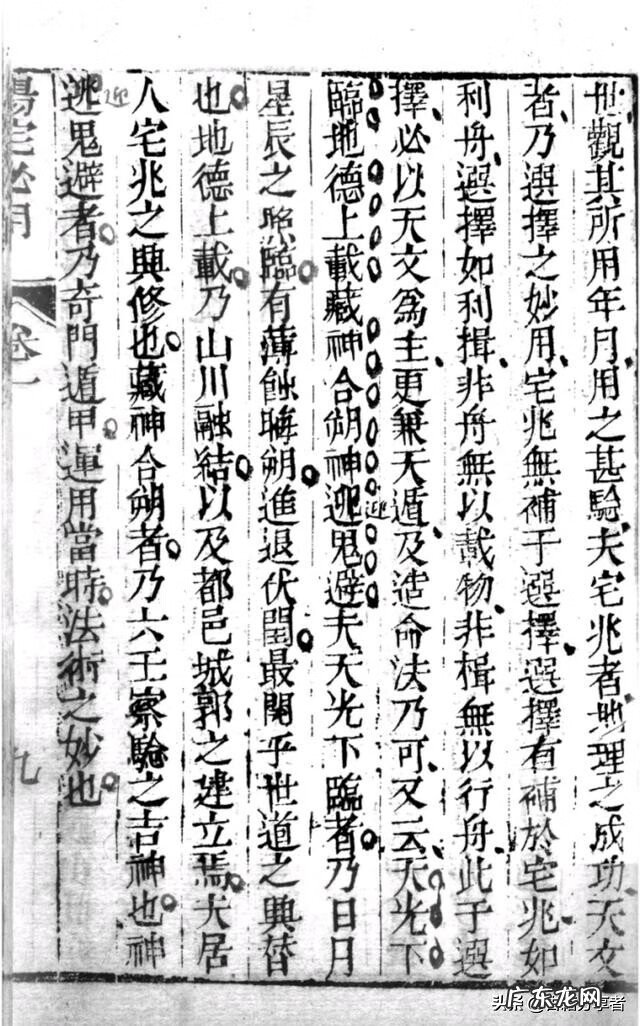 世觀其所用年月用之甚驗夫宅兆者地理之成功天文
者乃選擇之妙用宅兆無補于選擇選擇有補於宅兆如
利舟選擇如利揖非舟無以載物非楫無以行舟此于選
擇必以天文為主更兼天遁及造命法乃可又云天光下
臨地德上載藏神合朔神迎鬼避夫天光下臨者乃日月
迎
星辰之照臨有薄蝕晦朔進退伏閏最関乎世道之興替
也地德上載乃山川融結以及都邑城郭之建立焉大居
人宅兆之興修也藏神合朔者乃六壬察驗之吉神也神
迎
逃鬼避者乃奇門遁甲運用當時法術之妙也
陽宅必用 卷一 九
头条@古籍分享者
广东龙网